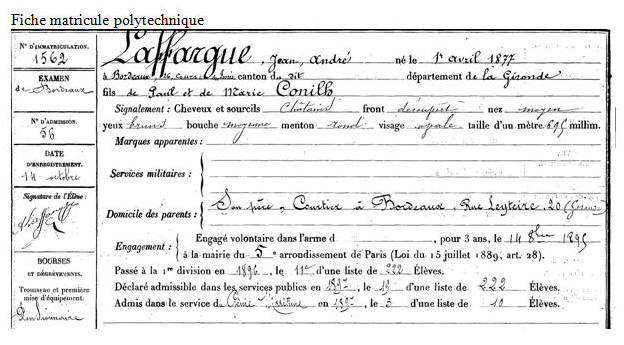 Fiche matricule polytechnique
N° D'IMMATRICULATION.
1562
EXAMEN
de Bordeaux
N° D'ADMISSION.
56
DATE
D'ENREGISTREMENT.
14 octobre
Signature de l'Élève:
BOURSES
ET DÉGRÈVEMENTS.
Trousseau et première
mise d'équipement.
Pensionnaire
Laffargue, Jean, André né le 1er avril 1877
à Bordeaux, 16, canton du dit département de la Gironde
fils de Paul et de Marie Conilh
Signalement : Cheveux et sourcils Châtains front découvert nez moyen
yeux bruns bouche moyenne menton rond visage ovale taille d'un mètre 695 millim.
Marques apparentes :
Services militaires :
Domicile des parents : Son père, Courtier à Bordeaux, Rue Leyteire, 20 (Gironde)
Engagement : Engagé volontaire dans l'arme d , pour 3 ans, le 14 8bre 1895
à la mairie du 5e arrondissement de Paris (Loi du 15 juillet 1889, art. 28).
Passé à la 1re division en 1896, le 11me d'une liste de 222 Élèves.
Déclaré admissible dans les services publics en 1897, le 19 d'une liste de 222 Élèves.
Admis dans le service du Génie Maritime en 1897, le 3 d'une liste de 10 Élèves.